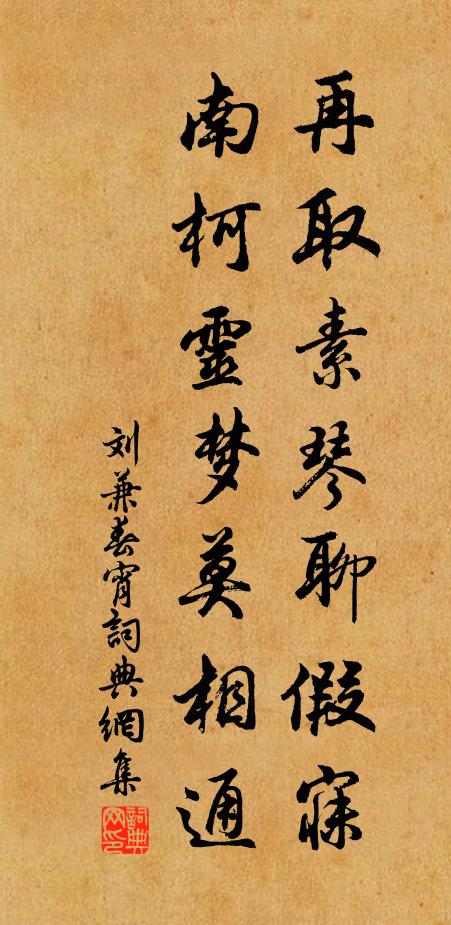 再取素琴聊假寐
南柯靈梦莫相通
刘兼春宵詞典網集
詞典網印